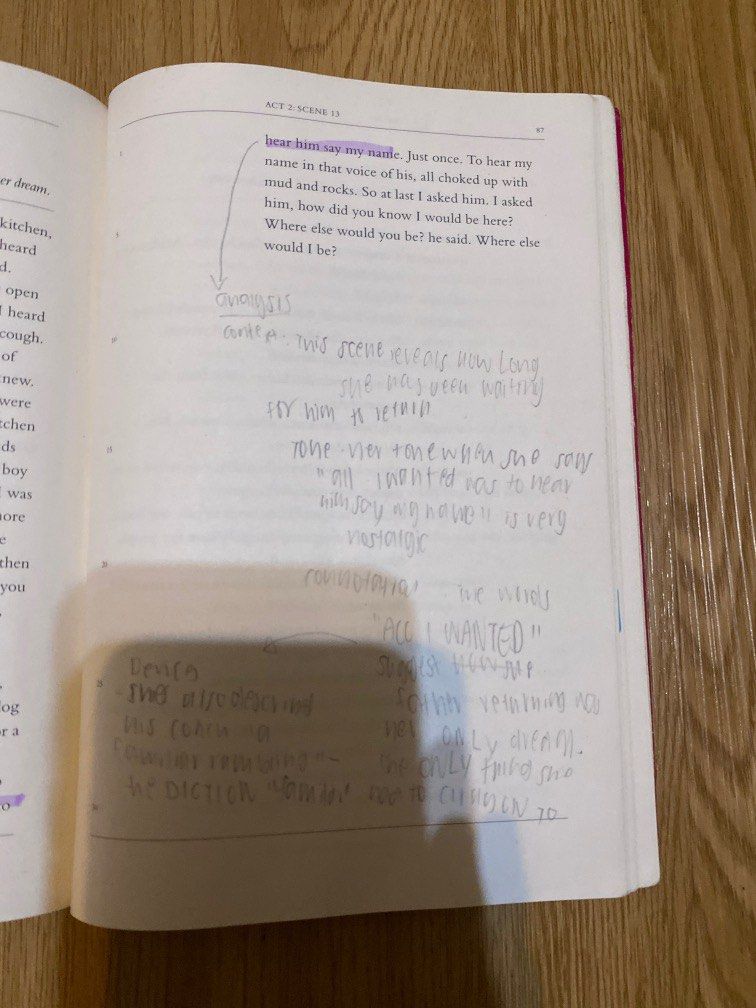 er dream.
kitchen,
heard
d.
open
I heard
cough.
of
new.
were
tchen
ds
boy
was
more
e
then
you
log
or a
o
ACT 2: SCENE 13
87
hear him say my name. Just once. To hear my
name in that voice of his, all choked up with
mud and rocks. So at last I asked him. I asked
him, how did you know I would be here?
Where else would you be? he said. Where else
would I be?
5
10
15
20
analysis
This scene reveals how long
she has been waiting
for him to return
Tone - her tone when she says
"all I wanted was to hear
him say my name" is very
nostalgic
connotation . The words
"ALL I WANTED"
suggest how she
returning was
her ONLY dream.
the ONLY thing she
TO
Device
- she also
his a
familiar " -
the DICTION